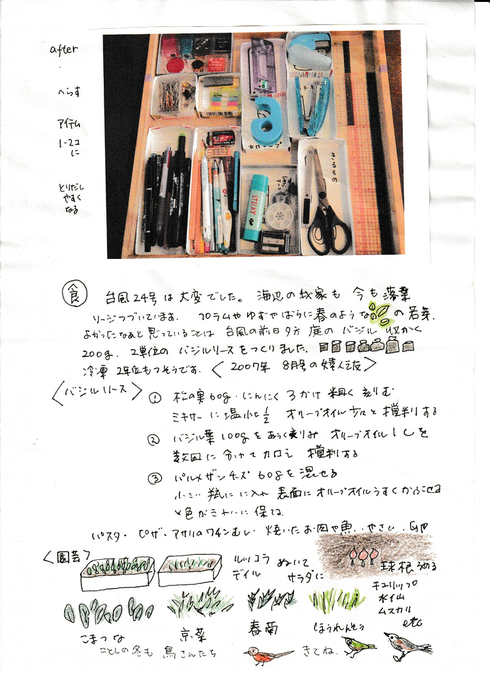 after
へらす
アイテム
1-2コ
に
とりだし
やすく
なる
きるもの
食
台風24号は大変でした。 海辺の我家も 今も落葉
つづいています。 プラムや ゆずや ばらに 春のような の若葉。
よかったなあと思っていることは 台風の前日夕方 庭のバジル 収かく
200g. 2単位の バジルソースをつくりました。
冷凍 2年位もつそうです。 <2007年 8月号の婦人之友>
<バジルソース>
① 松の実60g・にんにく3かけ 粗く刻む
ミキサーに 塩小さじ1/2 オリーブオイル少々と 攪拌する
② バジル葉100gをあらく刻み オリーブオイル1Cを
数回に分けて加え 攪拌する
③ パルメザンチーズ60gを混ぜる
小さい瓶に入れ 表面にオリーブオイルうすくかぶせる
と色がきれいに保てる
パスタ・ピザ・アサリのワインむし・焼いたお肉や魚. やさい.
<園芸>
ルッコラ
デイル
ぬいて
サラダに
球根うめる
チューリップ
水仙
ムスカリ
etc
こまつな
京菜
春菊
ほうれんそう
ことしの冬も 鳥さんたち きてね.